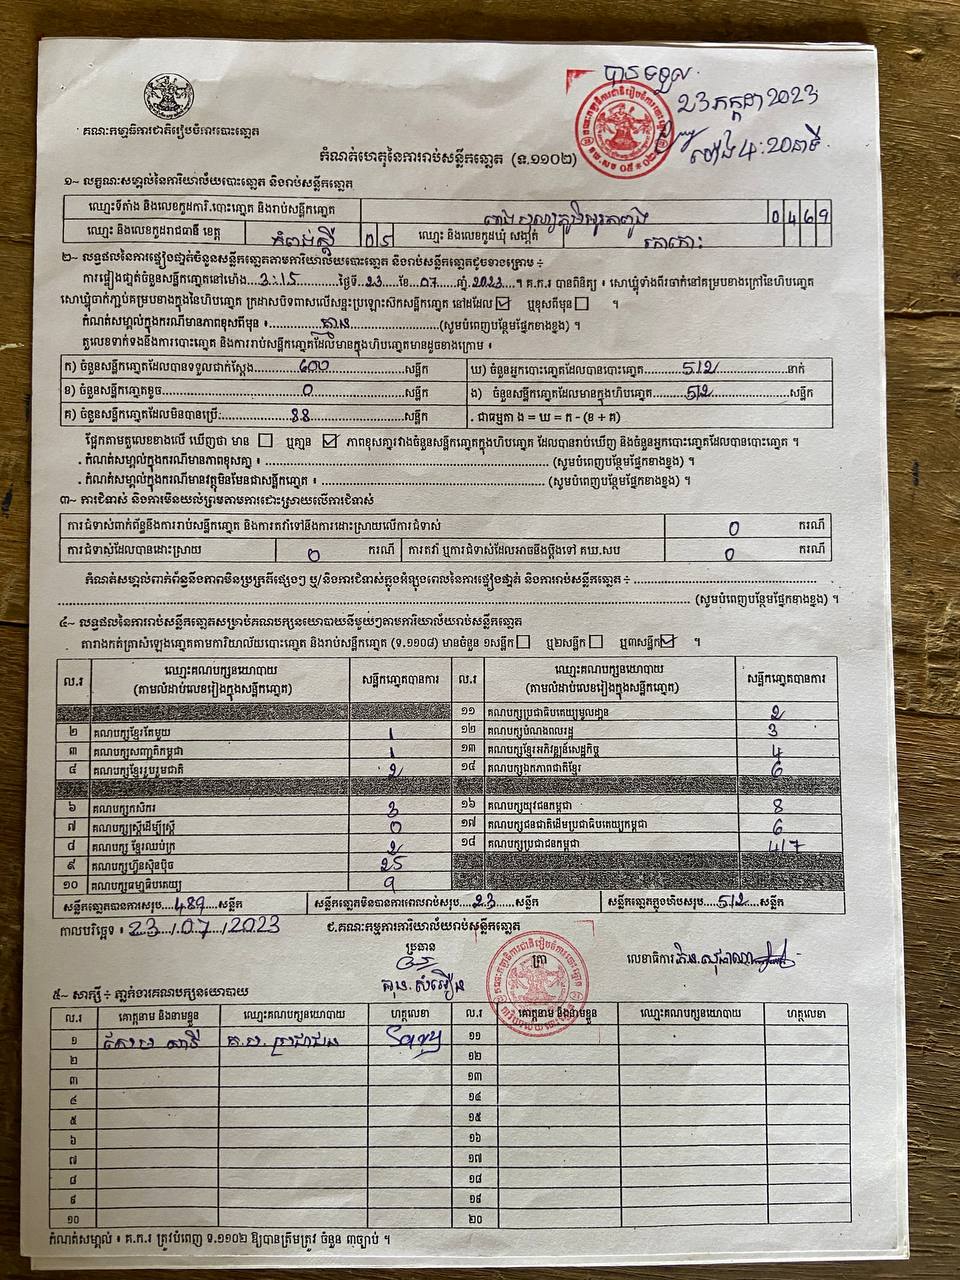 បានទទួល
23 កក្កដា 2023
ម៉ោង 4:20 នាទី
គណៈកម្មាធិការជាតិរៀបចំការបោះឆ្នោត
កំណត់ហេតុនៃការរាប់សន្លឹកឆ្នោត (ទ.១១០២)
១~ លក្ខណៈសម្គាល់នៃការិយាល័យបោះឆ្នោត និងរាប់សន្លឹកឆ្នោត
ឈ្មោះទីតាំង និងលេខកូដការិ.បោះឆ្នោត និងរាប់សន្លឹកឆ្នោត 0469
ឈ្មោះ និងលេខកូដរាជធានី ខេត្ត កំពង់ស្ពឺ 05 ឈ្មោះ និងលេខកូដឃុំ សង្កាត់
២~ លទ្ធផលនៃការផ្ទៀងផ្ទាត់ចំនួនសន្លឹកឆ្នោតតាមការិយាល័យបោះឆ្នោត និងរាប់សន្លឹកឆ្នោតដូចខាងក្រោម ÷
ការផ្ទៀងផ្ទាត់ចំនួនសន្លឹកឆ្នោតនៅម៉ោង 3:15 ថ្ងៃទី 23 ខែ 07 ឆ្នាំ 2023 ។ គ.ក.រ បានពិនិត្យ ៖ សោឃ្លុំទាំងពីរចាក់នៅគម្របខាងក្រៅនៃហិបឆ្នោត
សោឃ្លុំចាក់ភ្ជាប់គម្របខាងក្នុងនៃហិបឆ្នោត ក្រដាសបិទពាសលើសន្ទះប្រឡោះសិកសន្លឹកឆ្នោត នៅដដែល ☑ ឬខុសពីមុន ☐
កំណត់សម្គាល់ក្នុងករណីមានភាពខុសពីមុន ៖ គ្មាន (សូមបំពេញបន្ថែមផ្នែកខាងខ្នង) ។
តួលេខទាក់ទងនឹងការបោះឆ្នោត និងការរាប់សន្លឹកឆ្នោតដែលមានក្នុងហិបឆ្នោតមានដូចខាងក្រោម ៖
ក) ចំនួនសន្លឹកឆ្នោតដែលបានទទួលជាក់ស្តែង 600 សន្លឹក ឃ) ចំនួនអ្នកបោះឆ្នោតដែលបានបោះឆ្នោត 512 នាក់
ខ) ចំនួនសន្លឹកឆ្នោតខូច 0 សន្លឹក ង) ចំនួនសន្លឹកឆ្នោតដែលមានក្នុងហិបឆ្នោត 512 សន្លឹក
គ) ចំនួនសន្លឹកឆ្នោតដែលមិនបានប្រើ 88 សន្លឹក . ជាធម្មតា ង = ឃ = ក - (ខ + គ)
ផ្អែកតាមតួលេខខាងលើ ឃើញថា មាន ☐ ឬគ្មាន ☑ ភាពខុសគ្នារវាងចំនួនសន្លឹកឆ្នោតក្នុងហិបឆ្នោត ដែលបានរាប់ឃើញ និងចំនួនអ្នកបោះឆ្នោតដែលបានបោះឆ្នោត ។
. កំណត់សម្គាល់ក្នុងករណីមានភាពខុសគ្នា ៖ (សូមបំពេញបន្ថែមផ្នែកខាងខ្នង) ។
. កំណត់សម្គាល់ក្នុងករណីមានវត្ថុមិនមែនជាសន្លឹកឆ្នោត ៖ (សូមបំពេញបន្ថែមផ្នែកខាងខ្នង) ។
៣~ ការជំទាស់ និងការមិនយល់ព្រមតាមការដោះស្រាយលើការជំទាស់
ការជំទាស់ពាក់ព័ន្ធនឹងការរាប់សន្លឹកឆ្នោត និងការតវ៉ាទៅនឹងការដោះស្រាយលើការជំទាស់ 0 ករណី
ការជំទាស់ដែលបានដោះស្រាយ 0 ករណី ការតវ៉ា ឬការជំទាស់ដែលអាចនឹងប្តឹងទៅ គឃ.សប 0 ករណី
កំណត់សម្គាល់ពាក់ព័ន្ធនឹងភាពមិនប្រក្រតីផ្សេងៗ ឬ/និងការជំទាស់ក្នុងអំឡុងពេលនៃការផ្ទៀងផ្ទាត់ និងការរាប់សន្លឹកឆ្នោត ÷
(សូមបំពេញបន្ថែមផ្នែកខាងខ្នង) ។
៤~ លទ្ធផលនៃការរាប់សន្លឹកឆ្នោតសម្រាប់គណបក្សនយោបាយនីមួយៗតាមការិយាល័យរាប់សន្លឹកឆ្នោត
តារាងកត់ត្រាសំឡេងឆ្នោតតាមការិយាល័យបោះឆ្នោត និងរាប់សន្លឹកឆ្នោត (ទ.១១០៨) មានចំនួន ១សន្លឹក ☐ ឬ២សន្លឹក ☐ ឬ៣សន្លឹក ☑ ។
ល.រ ឈ្មោះគណបក្សនយោបាយ (តាមលំដាប់លេខរៀងក្នុងសន្លឹកឆ្នោត) សន្លឹកឆ្នោតបានការ ល.រ ឈ្មោះគណបក្សនយោបាយ (តាមលំដាប់លេខរៀងក្នុងសន្លឹកឆ្នោត) សន្លឹកឆ្នោតបានការ
១១ គណបក្សប្រជាធិបតេយ្យមូលដ្ឋាន 2
២ គណបក្សខ្មែរតែមួយ 1 ១២ គណបក្សបំណងពលរដ្ឋ 3
៣ គណបក្សសញ្ជាតិកម្ពុជា 1 ១៣ គណបក្សខ្មែរអភិវឌ្ឍន៍សេដ្ឋកិច្ច 4
៤ គណបក្សខ្មែររួបរួមជាតិ 2 ១៤ គណបក្សឯកភាពជាតិខ្មែរ 6
៦ គណបក្សកសិករ 3 ១៦ គណបក្សយុវជនកម្ពុជា 8
៧ គណបក្សស្ត្រីដើម្បីស្ត្រី 0 ១៧ គណបក្សជនជាតិដើមប្រជាធិបតេយ្យកម្ពុជា 6
៨ គណបក្ស ខ្មែរឈប់ក្រ 2 ១៨ គណបក្សប្រជាជនកម្ពុជា 417
៩ គណបក្សហ៊្វុនស៊ិនប៉ិច 25
១០ គណបក្សធម្មាធិបតេយ្យ 9
សន្លឹកឆ្នោតបានការសរុប 489 សន្លឹក សន្លឹកឆ្នោតមិនបានការពេលរាប់សរុប 23 សន្លឹក សន្លឹកឆ្នោតក្នុងហិបសរុប 512 សន្លឹក
កាលបរិច្ឆេទ ៖ 23/07/2023 ជ.គណៈកម្មការការិយាល័យរាប់សន្លឹកឆ្នោត
ប្រធាន ត្រា លេខាធិការ
៥~ សាក្សី ÷ ភ្នាក់ងារគណបក្សនយោបាយ
ល.រ គោត្តនាម និងនាមខ្លួន ឈ្មោះគណបក្សនយោបាយ ហត្ថលេខា ល.រ គោត្តនាម និងនាមខ្លួន ឈ្មោះគណបក្សនយោបាយ ហត្ថលេខា
១ គ.ប. ប្រជាជន ១១
២ ១២
៣ ១៣
៤ ១៤
៥ ១៥
៦ ១៦
៧ ១៧
៨ ១៨
៩ ១៩
១០ ២០
កំណត់សម្គាល់ ៖ គ.ក.រ ត្រូវបំពេញ ទ.១១០២ ឱ្យបានត្រឹមត្រូវ ចំនួន ៣ច្បាប់ ។